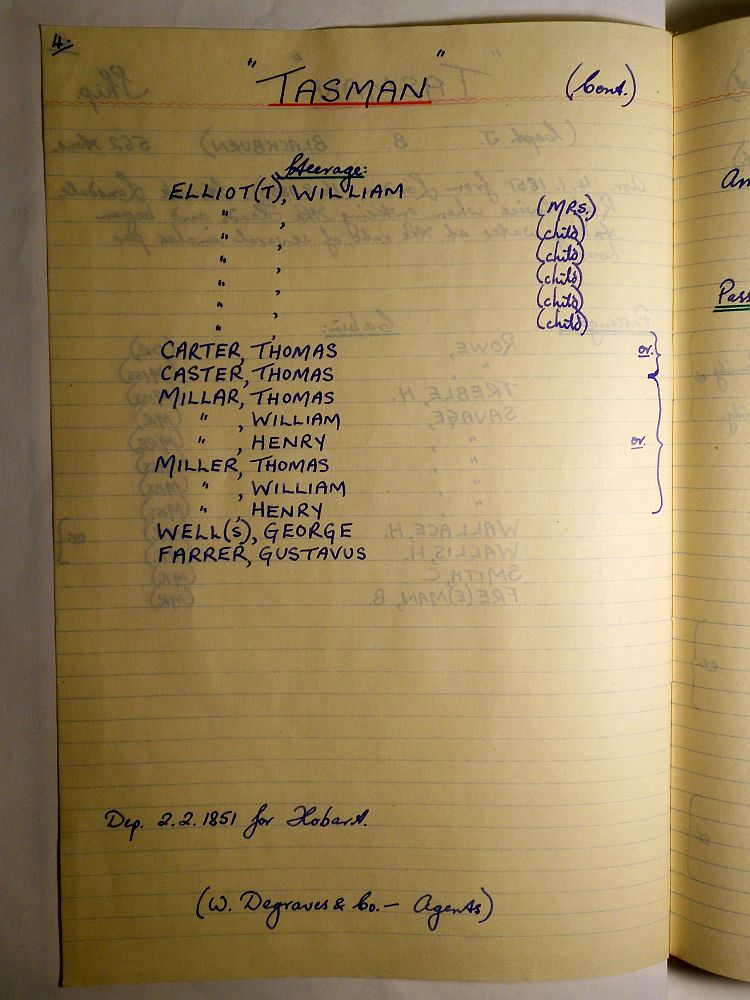 4.
" "TASMAN" " (Cont.)
Steerage:
ELLIOT(T), WILLIAM
" , (MRS.)
" , (child)
" , (child)
" , (child)
" , (child)
" , (child)
CARTER, THOMAS or.
CASTER, THOMAS
MILLAR, THOMAS
" , WILLIAM
" , HENRY or.
MILLER, THOMAS
" , WILLIAM
" , HENRY
WELL(S), GEORGE
FARRER, GUSTAVUS
Dep. 2.2.1851 for Hobart.
(W. Degraves & Co. — Agents)
Pass